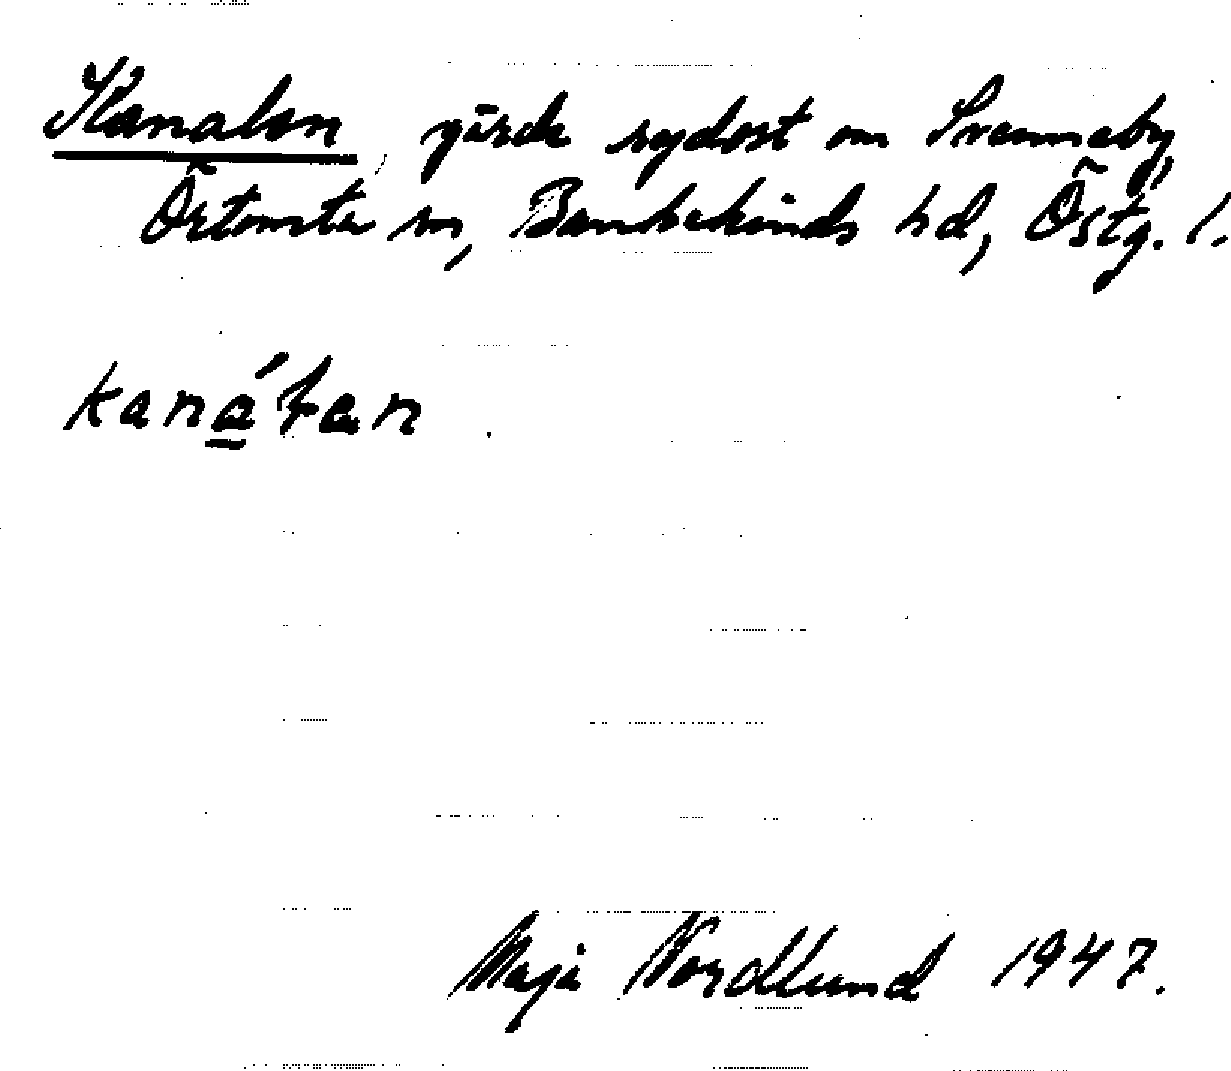 Kanalen, gärde sydost om Svenneby,
Örtomta sn, Bankekinds hd, Östg. l.
kanáʹlan
Maja Nordlund 1947.